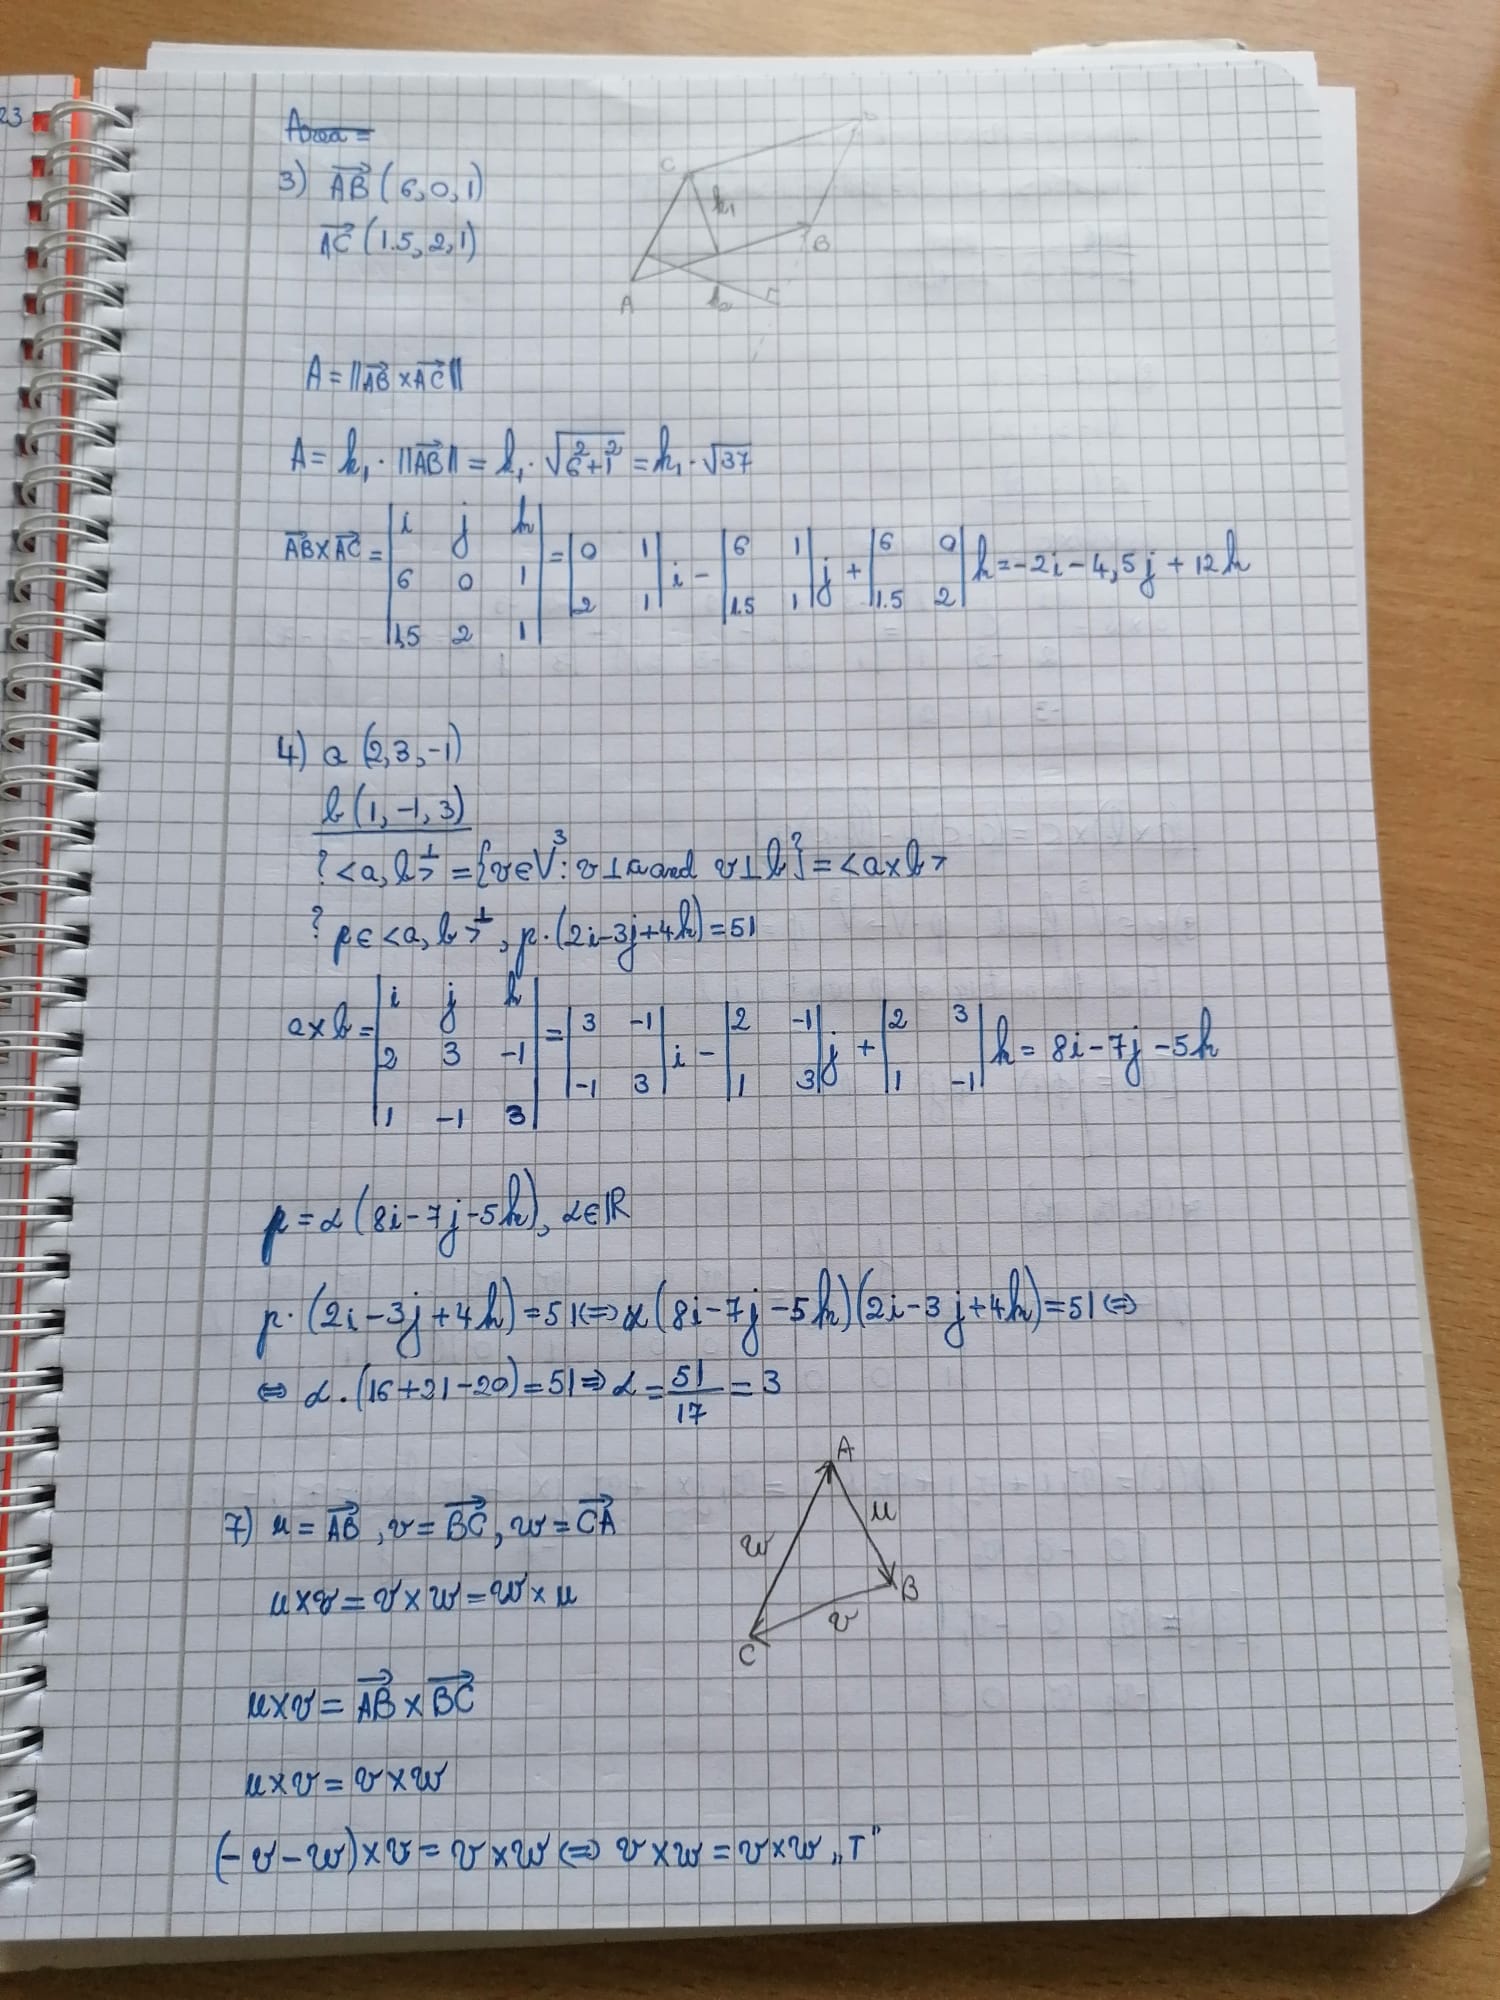 23
Area =
3) AB (6,0,1)
AC (1.5, 2, 1)
C
h₁
B
A
A = ||AB × AC||
A = h₁ · ||AB|| = h₁ · √6²+1² = h₁ · √37
AB×AC = |i j k; 6 0 1; 1,5 2 1| = |0 1; 2 1| i − |6 1; 1.5 1| j + |6 0; 1.5 2| k = −2i − 4,5j + 12k
4) a (2, 3, −1)
b (1, −1, 3)
? <a, b>^⊥ = {v ∈ V³ : v ⊥ a and v ⊥ b} = <a×b>
? p ∈ <a, b>^⊥, p·(2i−3j+4k) = 51
a×b = |i j k; 2 3 −1; 1 −1 3| = |3 −1; −1 3| i − |2 −1; 1 3| j + |2 3; 1 −1| k = 8i − 7j − 5k
p = α (8i − 7j − 5k), α ∈ ℝ
p· (2i − 3j + 4k) = 51 ⇔ α (8i − 7j − 5k)(2i − 3j + 4k) = 51 ⇔
⇔ α · (16 + 21 − 20) = 51 ⇒ α = 51/17 = 3
A
7) u = AB, v = BC, w = CA
u
w
B
u×v = v×w = w×u
v
C
u×v = AB × BC
u×v = v×w
(−v−w)×v = v×w ⇔ v×w = v×w „T"